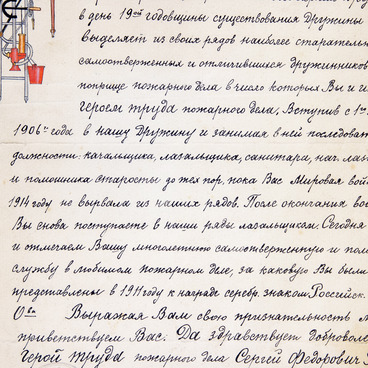 в день 19ой годовщины существования Дружины
выделяет из своих рядов наиболее старательн
самоотверженных и отличившихся дружинников
поприще пожарного дела в число которых Вы и
героем труда пожарного дела. Вступив с 1го
1906го года в нашу Дружину и занимая в ней последоват
должности: качальщика, лазальщика, санитара, нач. лаза
и помошника старосты до тех пор, пока Вас Мировая вой
1914 году не вырвала из наших рядов. После окончания во
Вы снова поступаете в наши ряды лазальщиком. Сегодня
и отмечаем Вашу многолетнюю самоотверженную и пол
службу в любимом пожарном деле, за каковую Вы были
представлены в 1911 году к награде серебр. знаком Российск.
О ва
Выражая Вам свою признательность
приветствуем Вас. Да здравствует доброволь
Герой труда пожарного дела Сергей Федорович